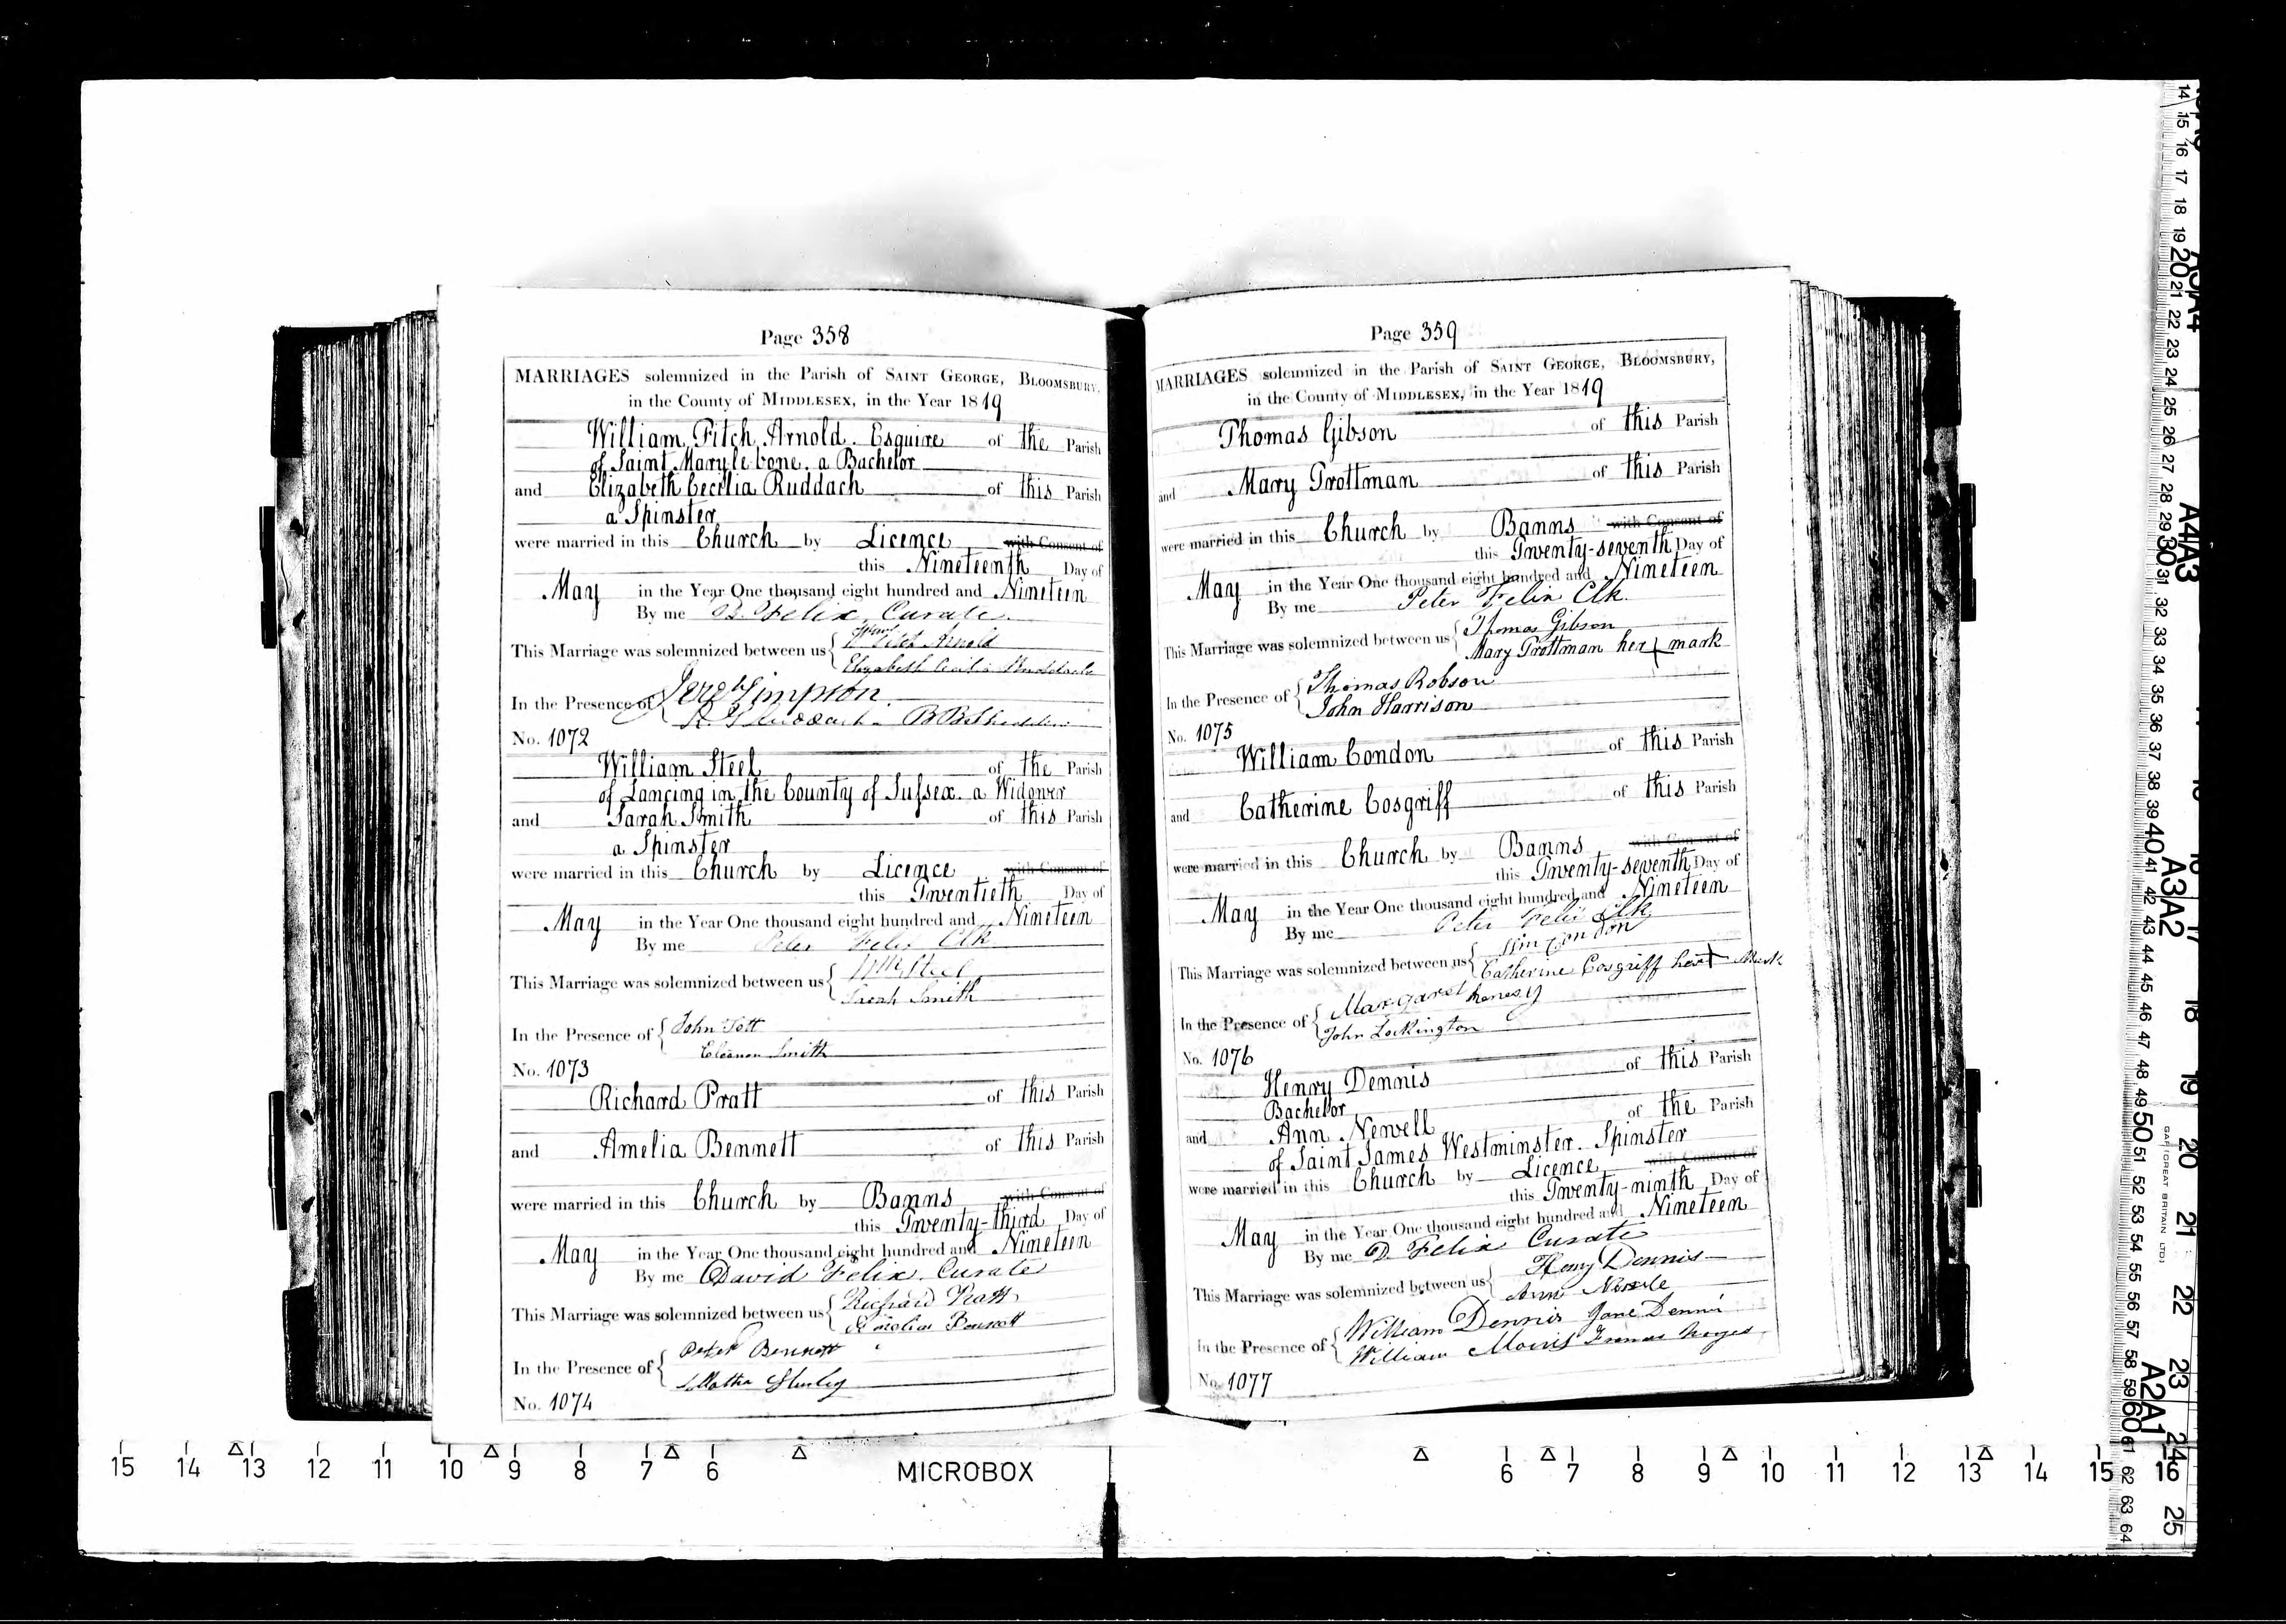 Page 358
MARRIAGES solemnized in the Parish of SAINT GEORGE, BLOOMSBURY,
in the County of MIDDLESEX, in the Year 1819
William Fitch Arnold Esquire of the Parish
of Saint Mary le bone. a Bachelor
and Elizabeth Cecilia Ruddach of this Parish
a Spinster
were married in this Church by Licence with Consent of
this Nineteenth Day of
May in the Year One thousand eight hundred and Nineteen
By me D. Felix Curate
This Marriage was solemnized between us { Fitch Arnold
Elizabeth Cecilia Ruddach
In the Presence of { Simpson
No. 1072
William Steel of the Parish
of Lancing in the County of Sussex. a Widower
and Sarah Smith of this Parish
a Spinster
were married in this Church by Licence with Consent of
this Twentieth Day of
May in the Year One thousand eight hundred and Nineteen
By me Peter Felix Clk
This Marriage was solemnized between us { Wm Steel
Sarah Smith
In the Presence of { John
Eleanor Smith
No. 1073
Richard Pratt of this Parish
and Amelia Bennett of this Parish
were married in this Church by Banns with Consent of
this Twenty-third Day of
May in the Year One thousand eight hundred and Nineteen
By me David Felix. Curate
This Marriage was solemnized between us { Richard Pratt
Amelia Bennett
In the Presence of { Peter Bennett
No. 1074
Page 359
MARRIAGES solemnized in the Parish of SAINT GEORGE, BLOOMSBURY,
in the County of MIDDLESEX, in the Year 1819
Thomas Gibson of this Parish
and Mary Trottman of this Parish
were married in this Church by Banns with Consent of
this Twenty-seventh Day of
May in the Year One thousand eight hundred and Nineteen
By me Peter Felix Clk.
This Marriage was solemnized between us { Thomas Gibson
Mary Trottman her mark
In the Presence of { Thomas Robson
John Harrison
No. 1075
William Condon of this Parish
and Catherine Cosgriff of this Parish
were married in this Church by Banns with Consent of
this Twenty-seventh Day of
May in the Year One thousand eight hundred and Nineteen
By me Peter Felix Clk
This Marriage was solemnized between us { Wm Condon
Catherine Cosgriff her + Mark
In the Presence of { Margaret henesy
John Lockington
No. 1076
Henry Dennis of this Parish
Bachelor
and Ann Newell of the Parish
of Saint James Westminster. Spinster
were married in this Church by Licence with Consent of
this Twenty-ninth Day of
May in the Year One thousand eight hundred and Nineteen
By me D. Felix Curate
This Marriage was solemnized between us { Henry Dennis
Ann
In the Presence of { William Dennis Jane Dennis
William Morris Noyes
No. 1077
15 14 13 12 11 10 9 8 7 6 MICROBOX 6 7 8 9 10 11 12 13 14 15 16